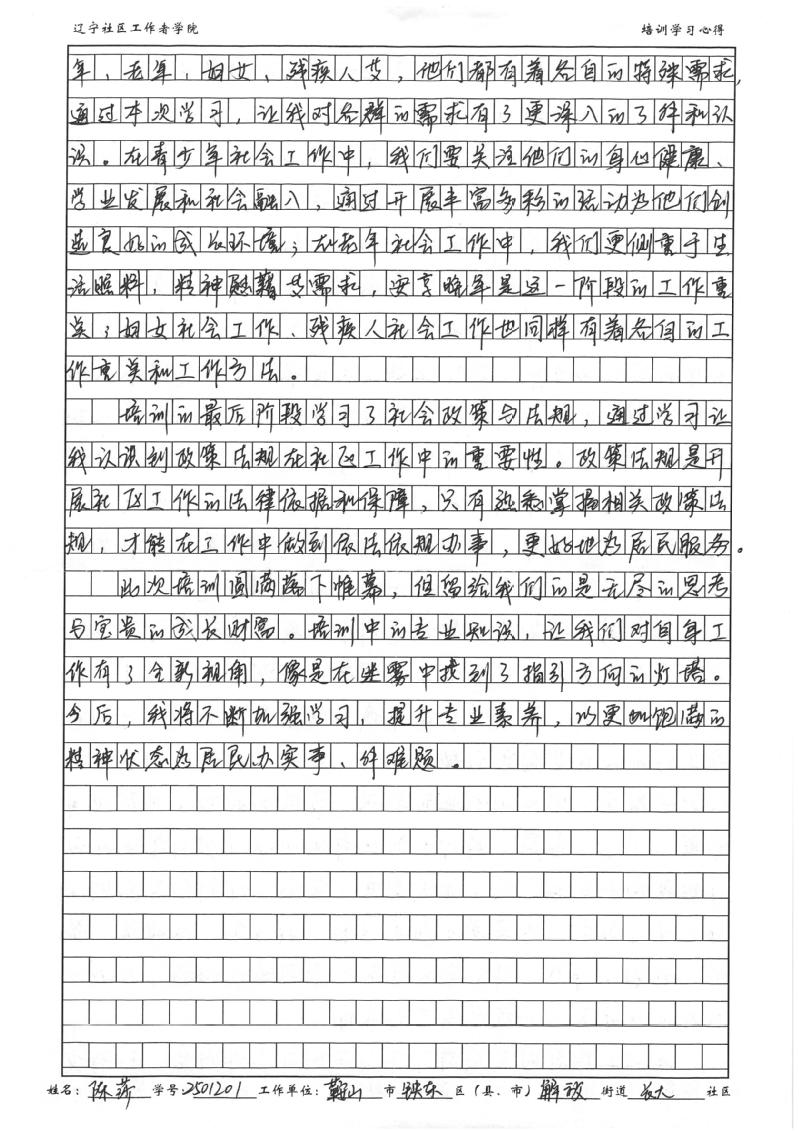 辽宁社区工作者学院 培训学习心得
年，老年，妇女、残疾人等，他们都有着各自的特殊需求，
通过本次学习，让我对各群的需求有了更深入的了解和认
识。在青少年社会工作中，我们要关注他们的身心健康、
学业发展和社会融入，通过开展丰富多彩的活动为他们创
造良好的成长环境；在老年社会工作中，我们更侧重于生
活照料，精神慰藉等需求，安享晚年是这一阶段的工作重
点；妇女社会工作、残疾人社会工作也同样有着各自的工
作重点和工作方法。
培训的最后阶段学习了社会政策与法规，通过学习让
我认识到政策法规在社区工作中的重要性。政策法规是开
展社区工作的法律依据和保障，只有熟悉掌握相关政策法
规，才能在工作中做到依法依规办事，更好地为居民服务。
此次培训圆满落下帷幕，但留给我们的是无尽的思考
与宝贵的成长财富。培训中的专业知识，让我们对自身工
作有了全新视角，像是在迷雾中找到了指引方向的灯塔。
今后，我将不断加强学习，提升专业素养，以更加饱满的
精神状态为居民办实事、解难题。
姓名：陈莎 学号：2501201 工作单位：鞍山 市 铁东 区（县、市） 解放 街道 长大 社区